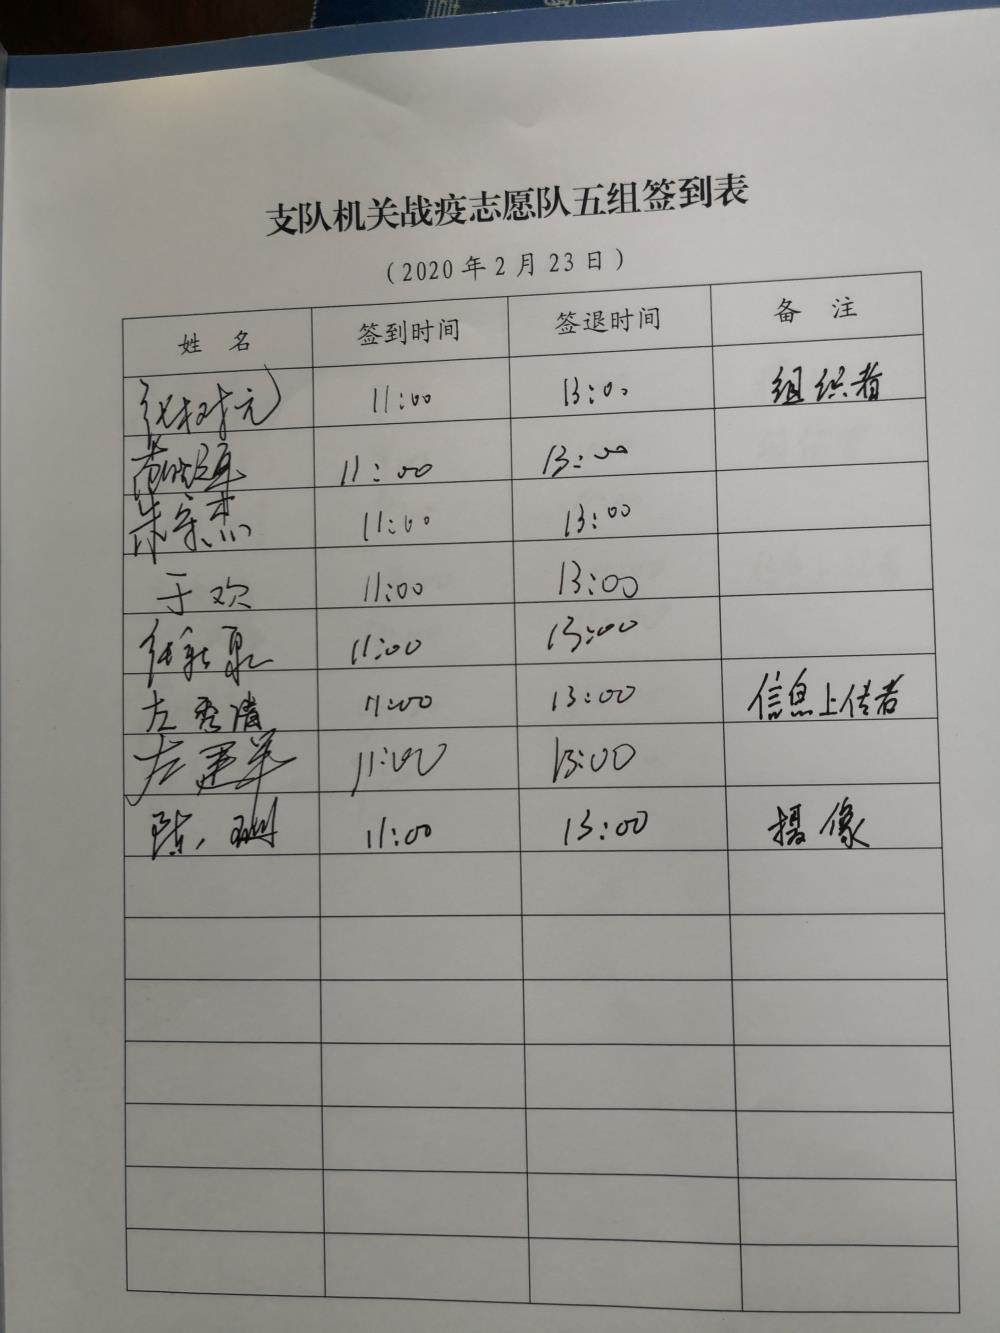 支队机关战疫志愿队五组签到表
（2020年2月23日）
姓 名 签到时间 签退时间 备 注
11:00 13:00 组织者
11:00 13:00
朱宗杰 11:00 13:00
于欢 11:00 13:00
11:00 13:00
左秀清 11:00 13:00 信息上传者
左建军 11:00 13:00
陈珊 11:00 13:00 摄像